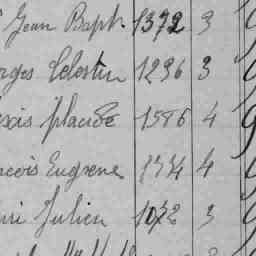 Jean Bapt. 1372 3
rges Celestin 1236 3
exis placide 1586 4
ncois Eugene 1334 4
nri Julien 1072 3